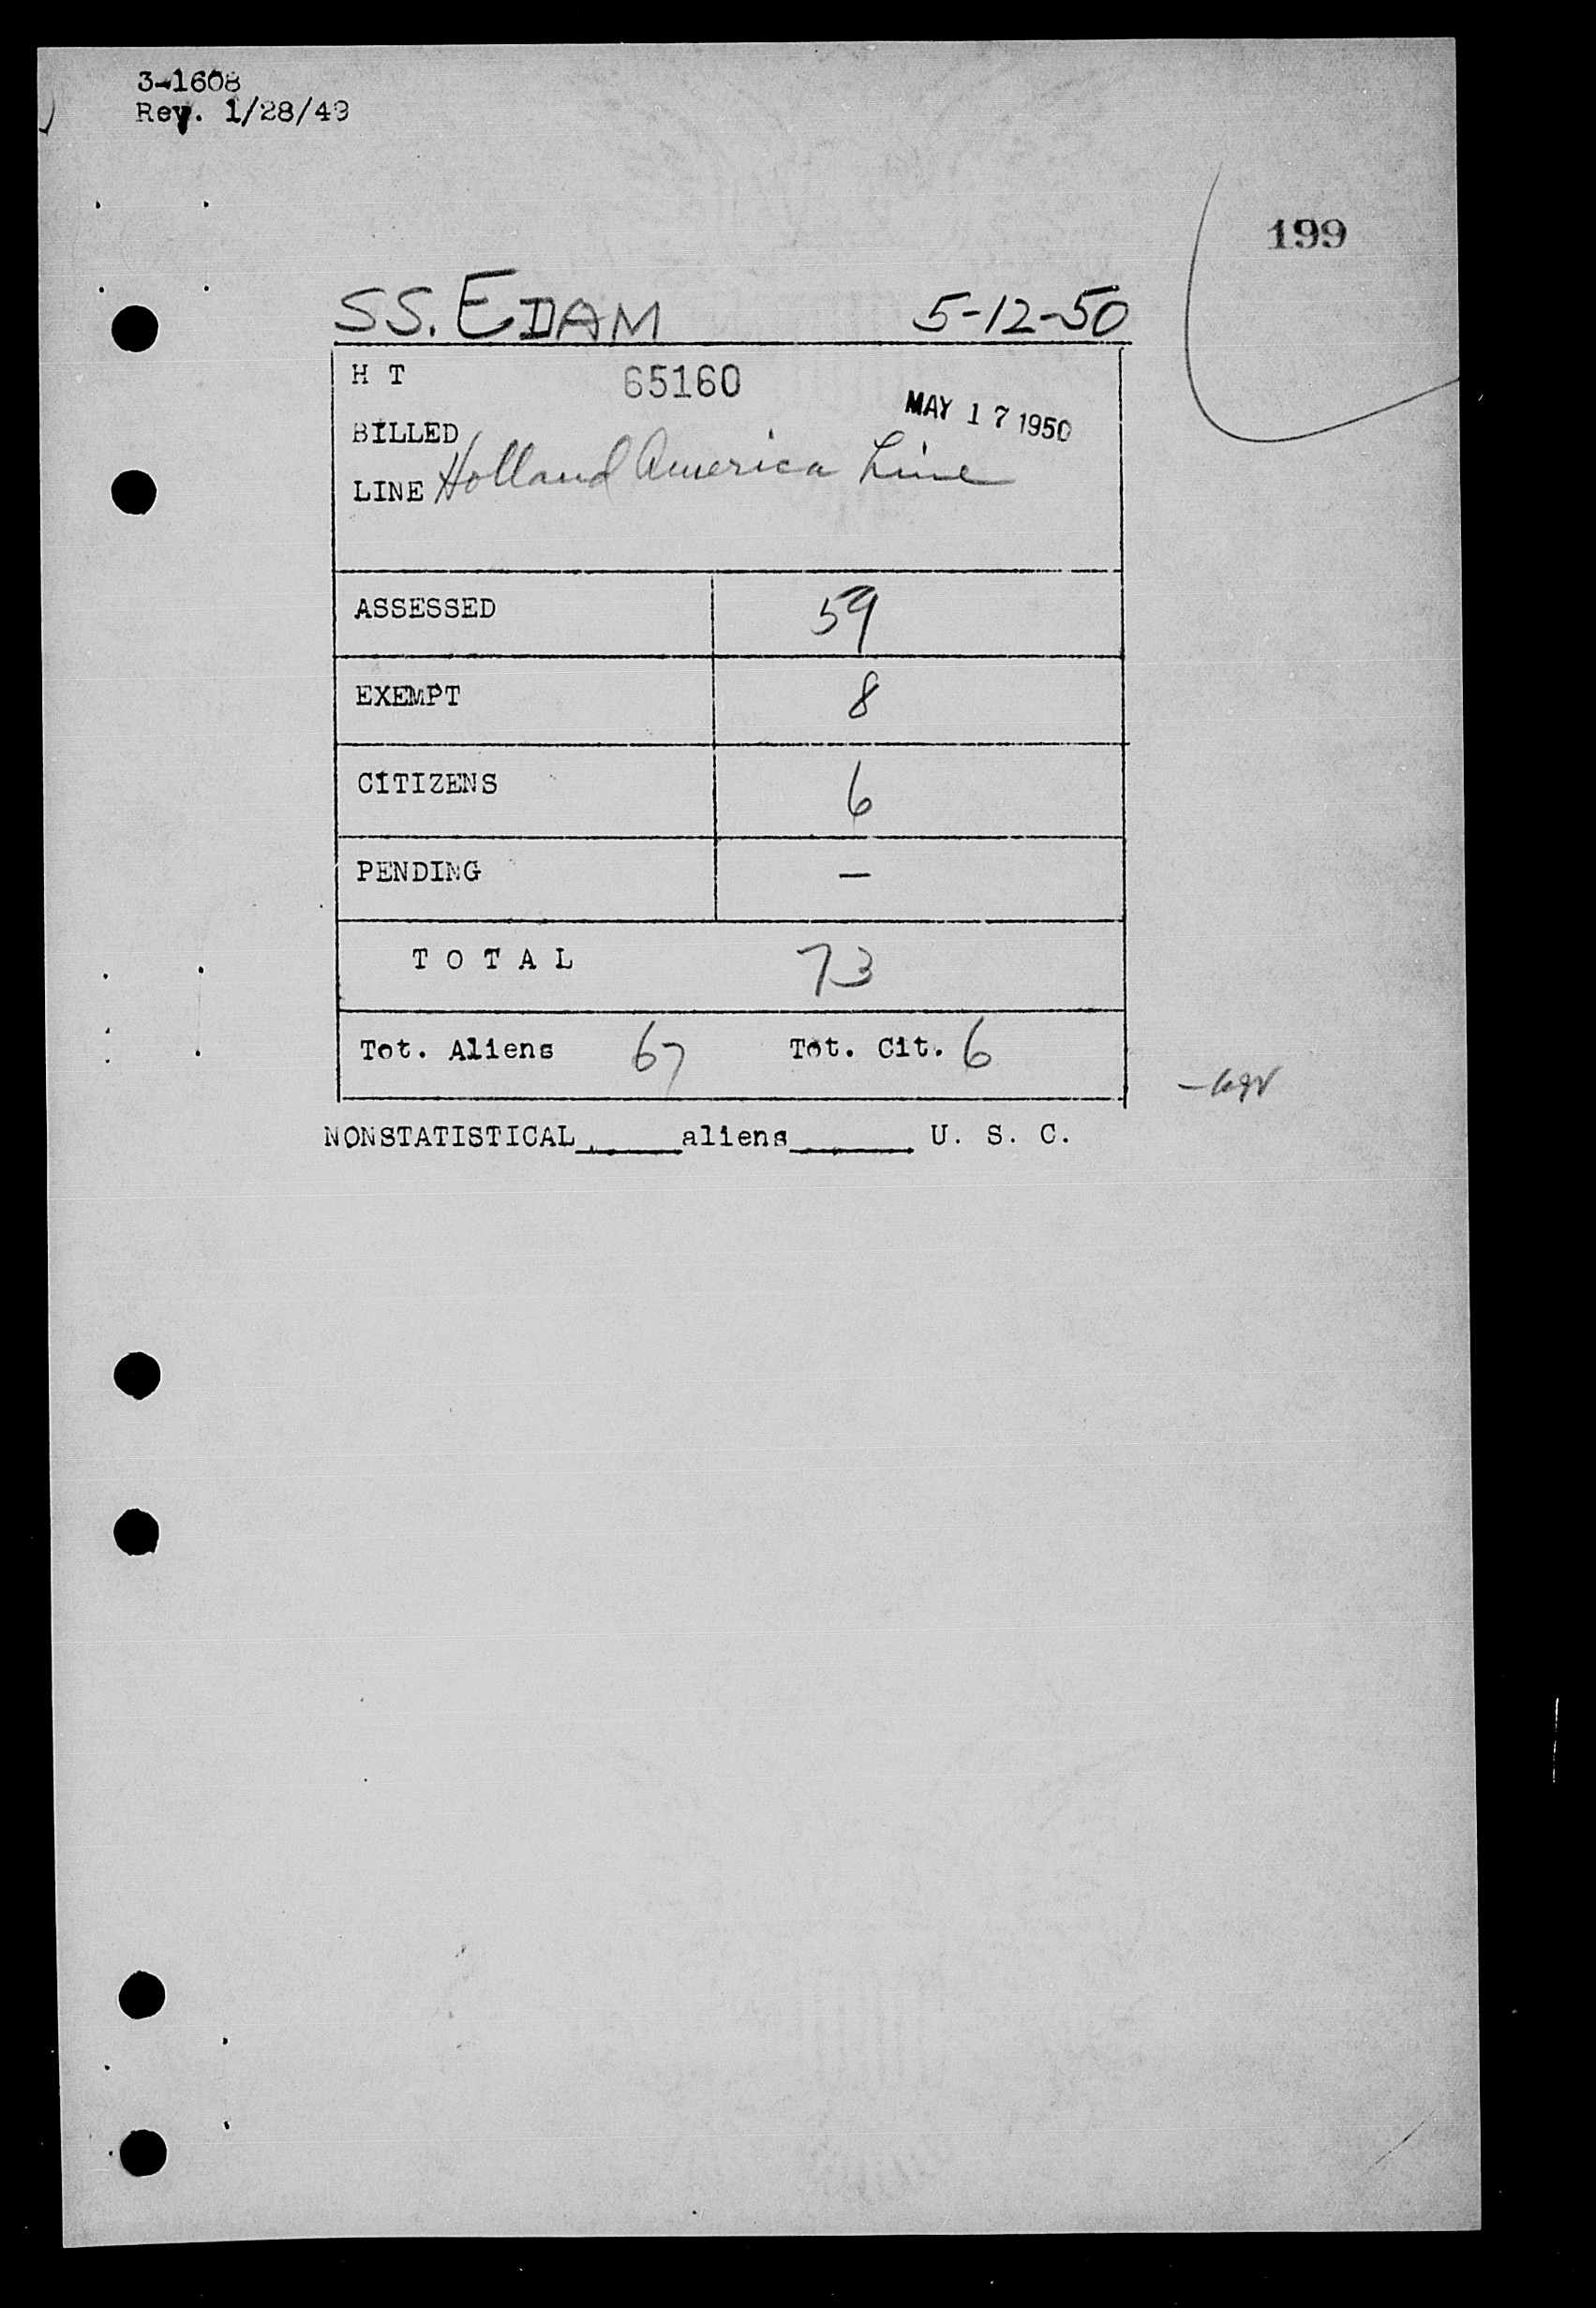 3-1608
Rev. 1/28/49
199
SS. EDAM 5-12-50
H T 65160
MAY 17 1950
BILLED
LINE Holland America Line
ASSESSED 59
EXEMPT 8
CITIZENS 6
PENDING —
T O T A L 73
Tot. Aliens 67 Tot. Cit. 6
NONSTATISTICAL_____aliens_____ U. S. C.